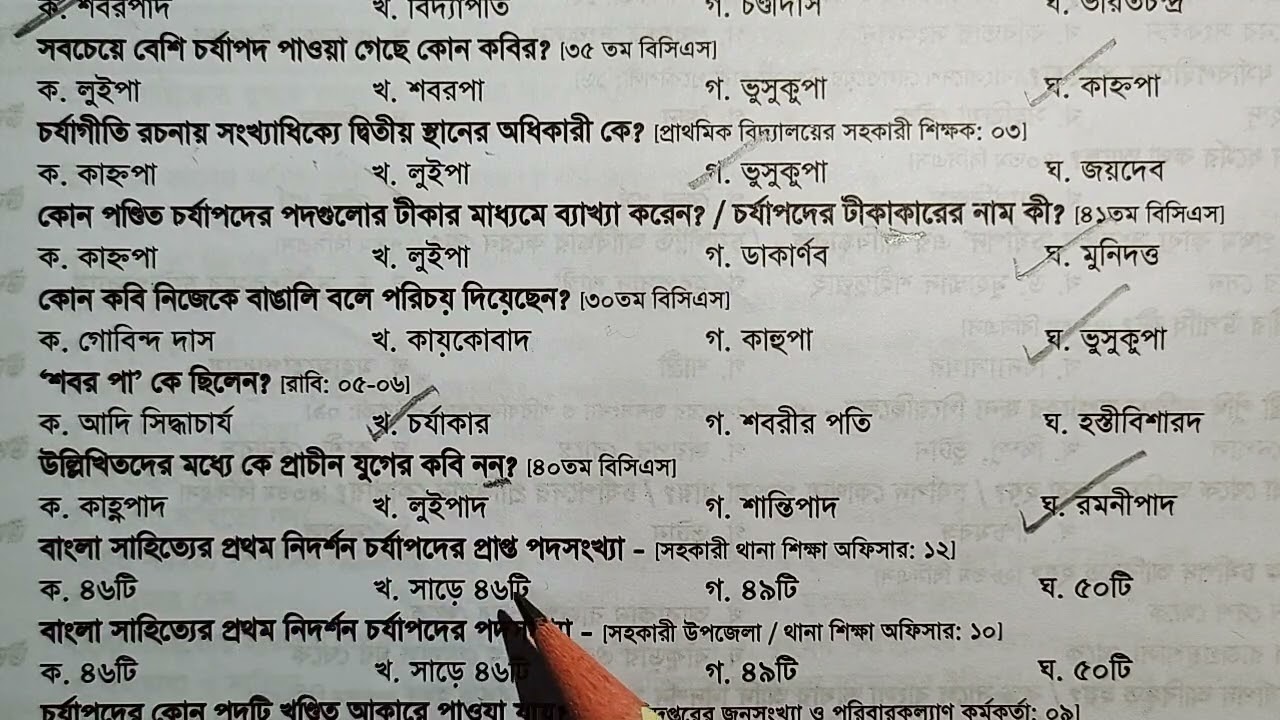 ক. শবরপাদ খ. বিদ্যাপতি গ. চণ্ডীদাস ঘ. ভারতচন্দ্র
সবচেয়ে বেশি চর্যাপদ পাওয়া গেছে কোন কবির? [৩৫ তম বিসিএস]
ক. লুইপা খ. শবরপা গ. ভুসুকুপা ঘ. কাহ্নপা
চর্যাগীতি রচনায় সংখ্যাধিক্যে দ্বিতীয় স্থানের অধিকারী কে? [প্রাথমিক বিদ্যালয়ের সহকারী শিক্ষক: ০৩]
ক. কাহ্নপা খ. লুইপা গ. ভুসুকুপা ঘ. জয়দেব
কোন পণ্ডিত চর্যাপদের পদগুলোর টীকার মাধ্যমে ব্যাখ্যা করেন? / চর্যাপদের টীকাকারের নাম কী? [৪১তম বিসিএস]
ক. কাহ্নপা খ. লুইপা গ. ডাকার্ণব ঘ. মুনিদত্ত
কোন কবি নিজেকে বাঙালি বলে পরিচয় দিয়েছেন? [৩০তম বিসিএস]
ক. গোবিন্দ দাস খ. কায়কোবাদ গ. কাহুপা ঘ. ভুসুকুপা
‘শবর পা’ কে ছিলেন? [রাবি: ০৫-০৬]
ক. আদি সিদ্ধাচার্য খ. চর্যাকার গ. শবরীর পতি ঘ. হস্তীবিশারদ
উল্লিখিতদের মধ্যে কে প্রাচীন যুগের কবি নন? [৪০তম বিসিএস]
ক. কাহ্ণপাদ খ. লুইপাদ গ. শান্তিপাদ ঘ. রমনীপাদ
বাংলা সাহিত্যের প্রথম নিদর্শন চর্যাপদের প্রাপ্ত পদসংখ্যা – [সহকারী থানা শিক্ষা অফিসার: ১২]
ক. ৪৬টি খ. সাড়ে ৪৬টি গ. ৪৯টি ঘ. ৫০টি
বাংলা সাহিত্যের প্রথম নিদর্শন চর্যাপদের – [সহকারী উপজেলা / থানা শিক্ষা অফিসার: ১০]
ক. ৪৬টি খ. সাড়ে ৪৬টি গ. ৪৯টি ঘ. ৫০টি
চর্যাপদের কোন পদটি খণ্ডিত আকারে পাওয়া জনসংখ্যা ও পরিবারকল্যাণ কর্মকর্তা: ০৯]